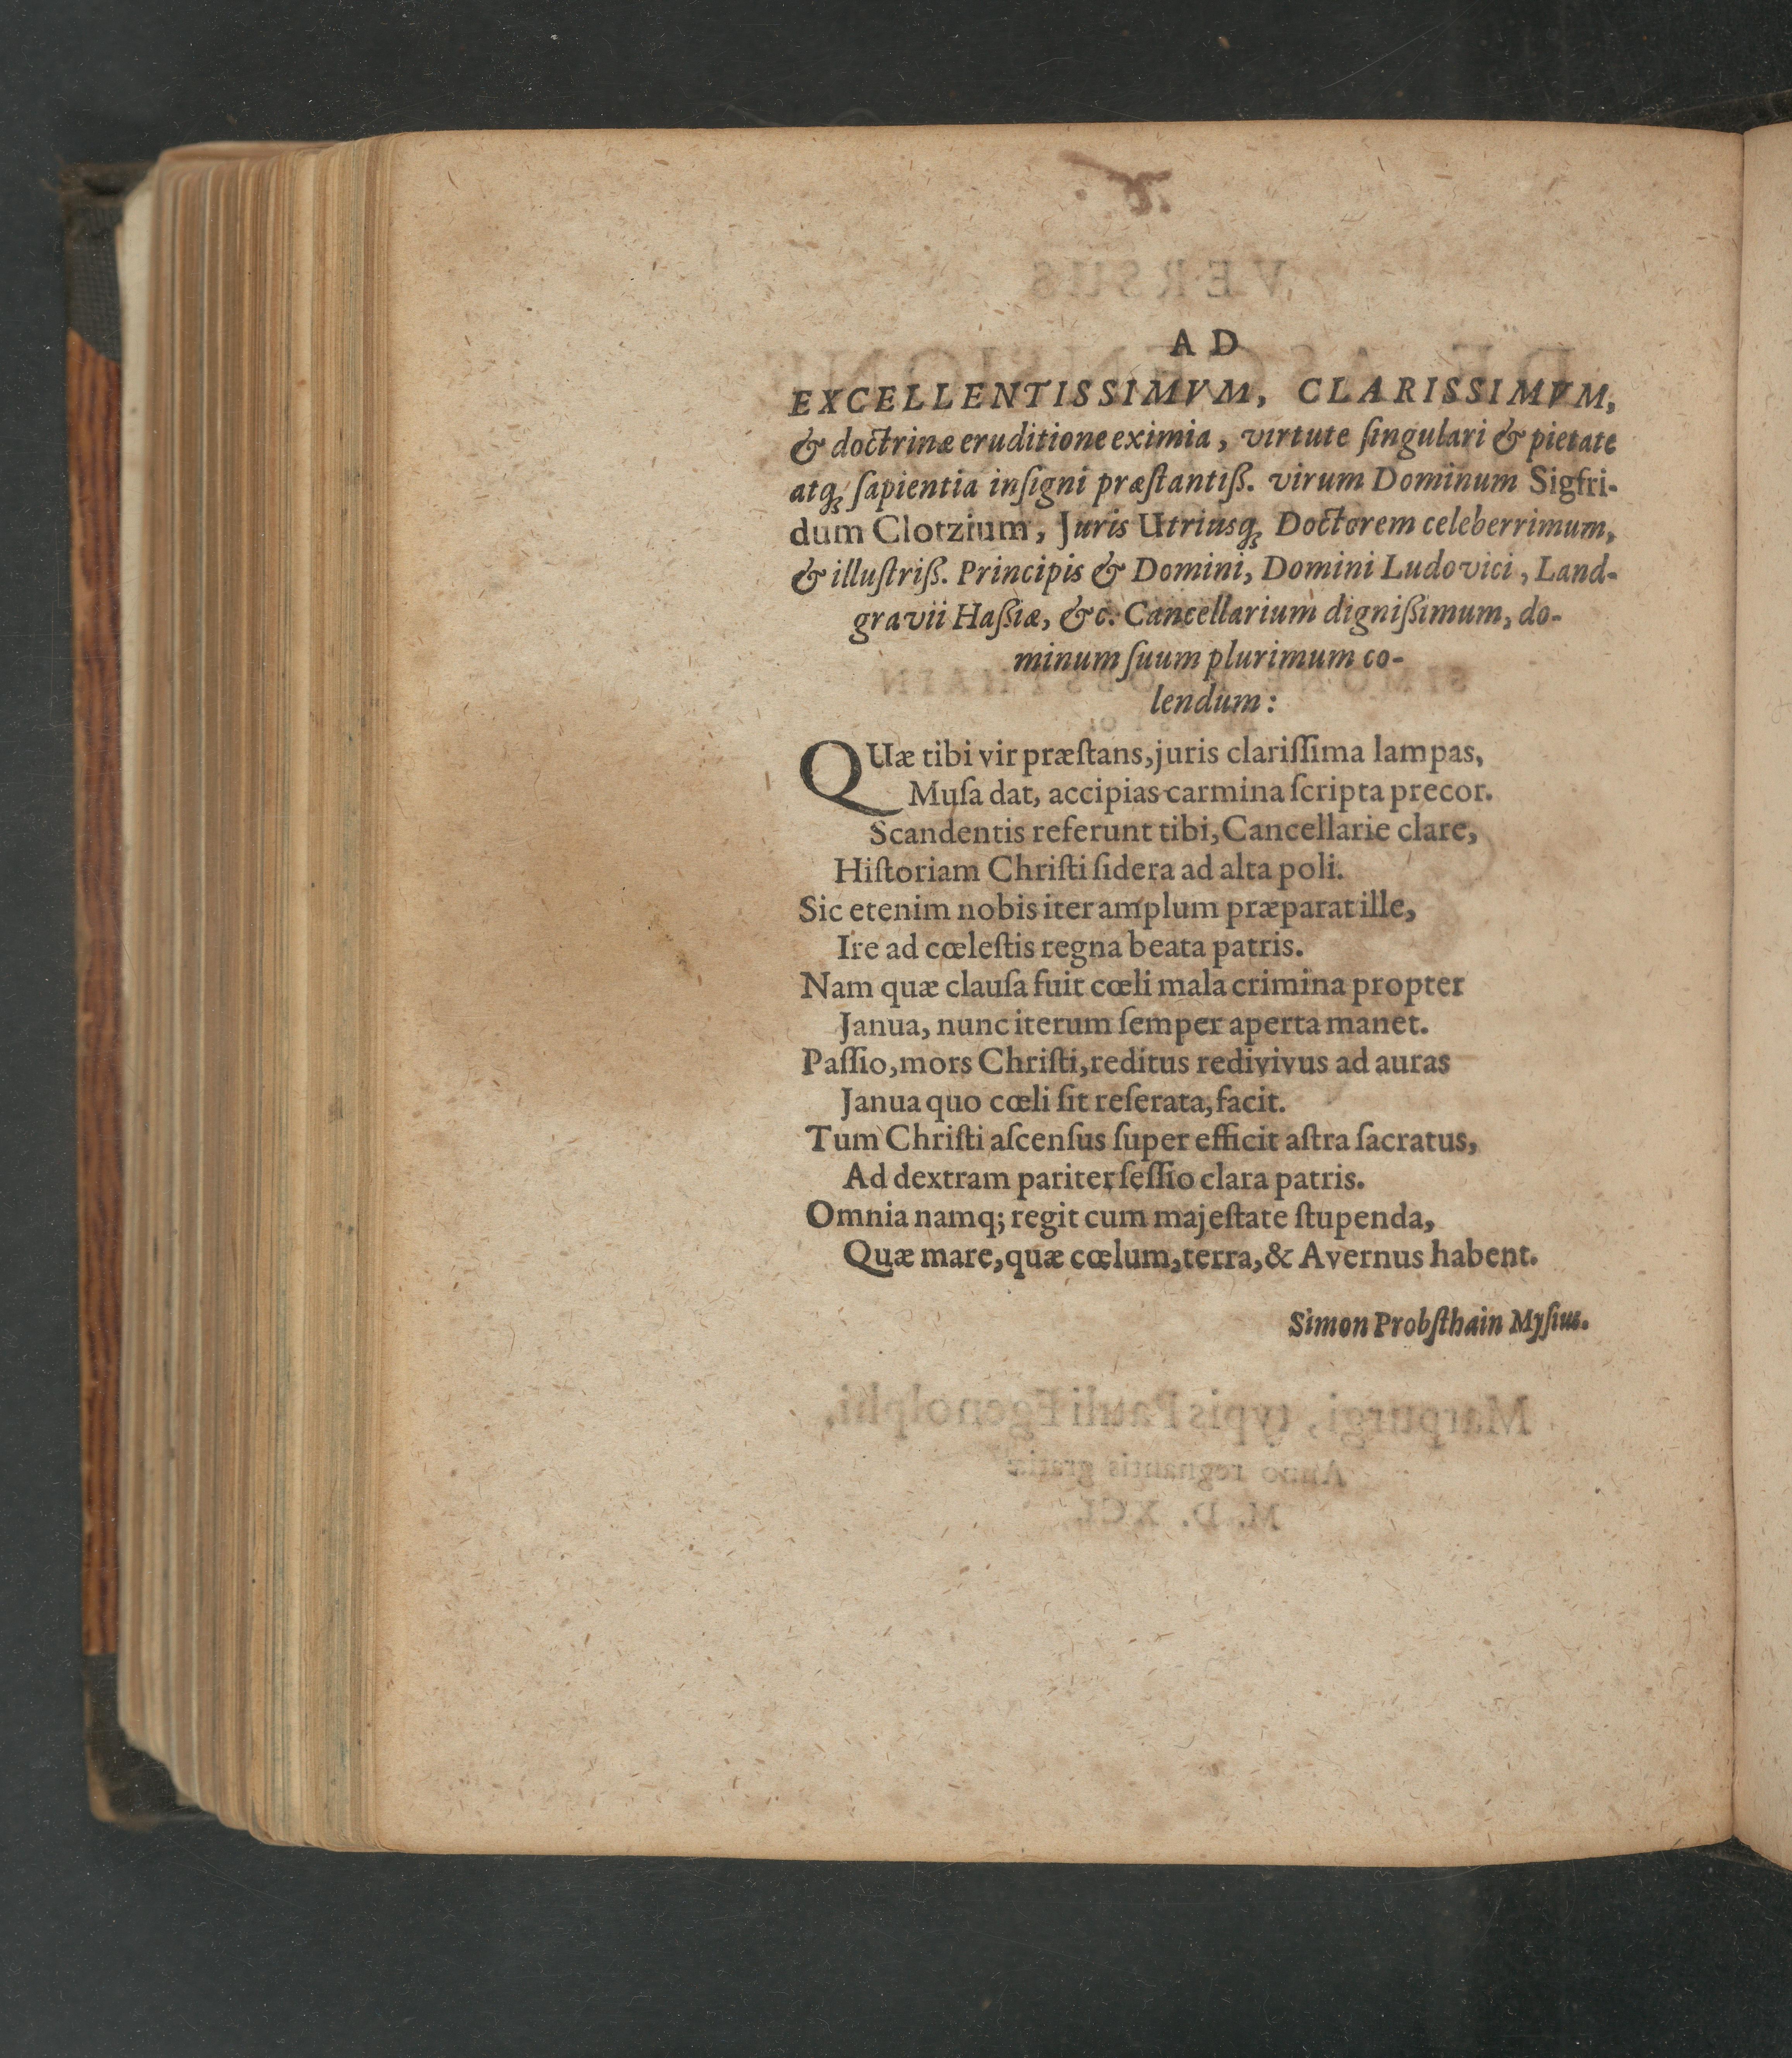 AD
EXCELLENTISSIMVM, CLARISSIMVM,
& doctrinæ eruditione eximia, virtute ſingulari & pietate
atq́ꝫ ſapientia inſigni præſtantiß. virum Dominum Sigfri-
dum Clotzium, Juris Utriusqꝫ Doctorem celeberrimum,
& illuſtriß. Principis & Domini, Domini Ludovici, Land-
gravii Haßiæ, &c. Cancellarium dignißimum, do-
minum ſuum plurimum co-
lendum:
QUæ tibi vir præſtans, juris clariſſima lampas,
Muſa dat, accipias carmina ſcripta precor.
Scandentis referunt tibi, Cancellarie clare,
Hiſtoriam Chriſti ſidera ad alta poli.
Sic etenim nobis iter amplum præparat ille,
Ire ad cœleſtis regna beata patris.
Nam quæ clauſa fuit cœli mala crimina propter
Janua, nunc iterum ſemper aperta manet.
Paſſio, mors Chriſti, reditus redivivus ad auras
Janua quo cœli ſit reſerata, facit.
Tum Chriſti aſcenſus ſuper efficit aſtra ſacratus,
Ad dextram pariter ſeſſio clara patris.
Omnia namq; regit cum majeſtate ſtupenda,
Quæ mare, quæ cœlum, terra, & Avernus habent.
Simon Probſthain Myſius.